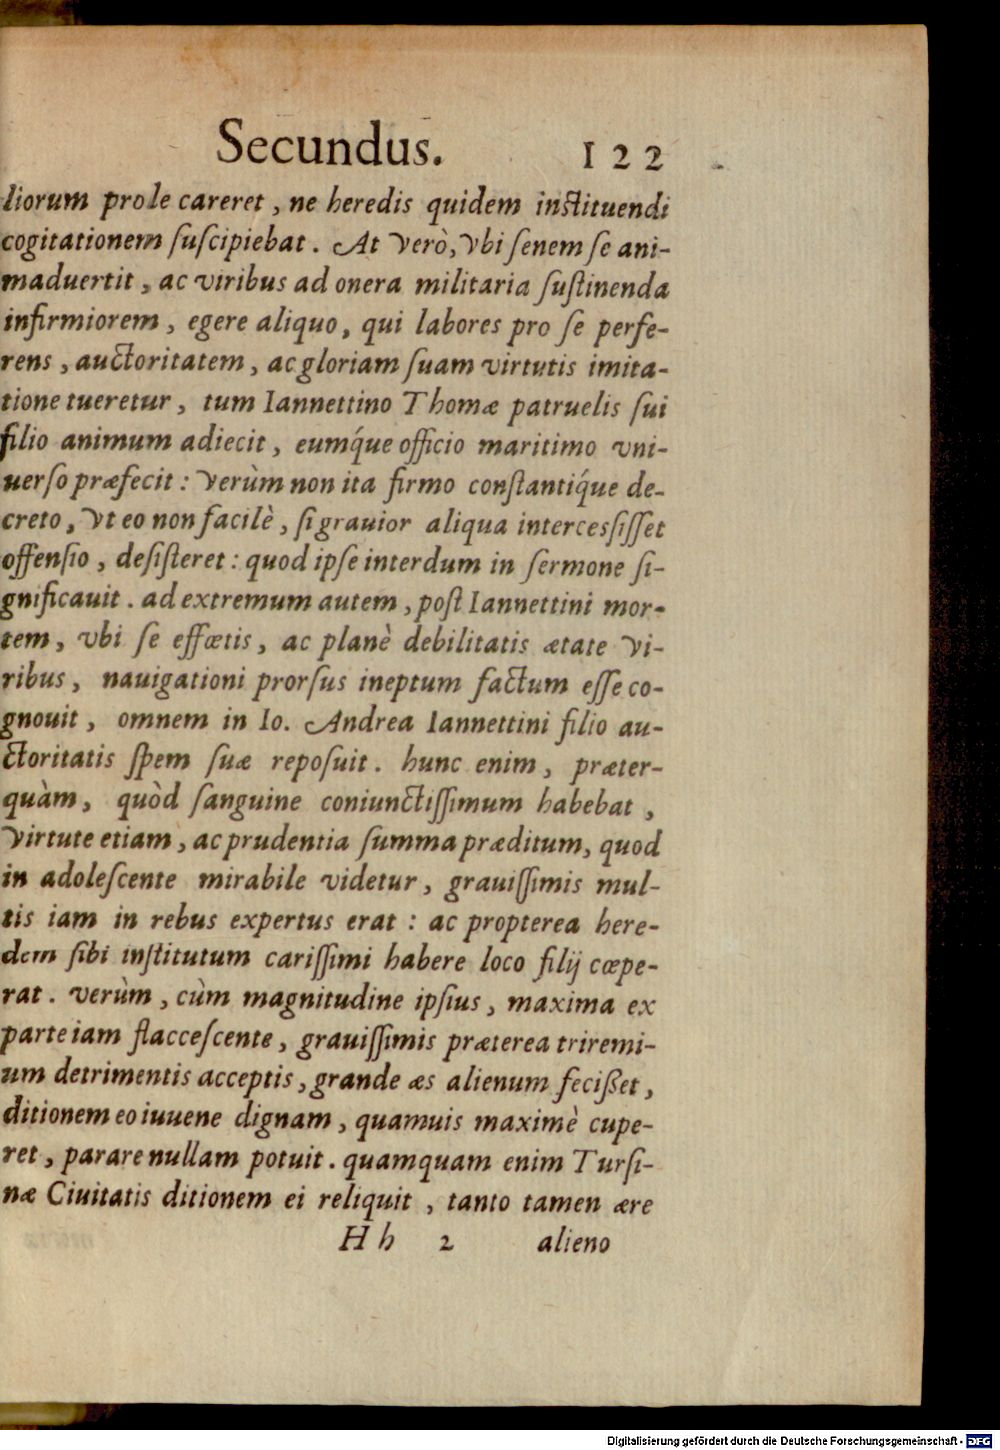 Secundus. 122
liorum prole careret, ne heredis quidem instituendi
cogitationem ſuſcipiebat. At verò, vbi ſenem ſe ani-
maduertit, ac viribus ad onera militaria ſuſtinenda
infirmiorem, egere aliquo, qui labores pro ſe perfe-
rens, auctoritatem, ac gloriam ſuam virtutis imita-
tione tueretur, tum Iannettino Thomæ patruelis ſui
filio animum adiecit, eumq́ue officio maritimo vni-
uerſo præfecit: verùm non ita firmo conſtantiq́ue de-
creto, vt eo non facilè, ſi grauior aliqua interceſſiſſet
offenſio, deſiſteret: quod ipſe interdum in ſermone ſi-
gnificauit. ad extremum autem, poſt Iannettini mor-
tem, vbi ſe effœtis, ac planè debilitatis ætate vi-
ribus, nauigationi prorſus ineptum factum eſſe co-
gnouit, omnem in Io. Andrea Iannettini filio au-
ctoritatis ſpem ſuæ repoſuit. hunc enim, præter-
quàm, quòd ſanguine coniunctiſſimum habebat,
virtute etiam, ac prudentia ſumma præditum, quod
in adoleſcente mirabile videtur, grauiſſimis mul-
tis iam in rebus expertus erat: ac propterea here-
dem ſibi inſtitutum cariſſimi habere loco filij cœpe-
rat. verùm, cùm magnitudine ipſius, maxima ex
parte iam flacceſcente, grauiſſimis præterea triremi-
um detrimentis acceptis, grande æs alienum fecißet,
ditionem eo iuuene dignam, quamuis maximè cupe-
ret, parare nullam potuit. quamquam enim Turſi-
næ Ciuitatis ditionem ei reliquit, tanto tamen ære
H h 2 alieno
Digitalisierung gefördert durch die Deutsche Forschungsgemeinschaft - DFG